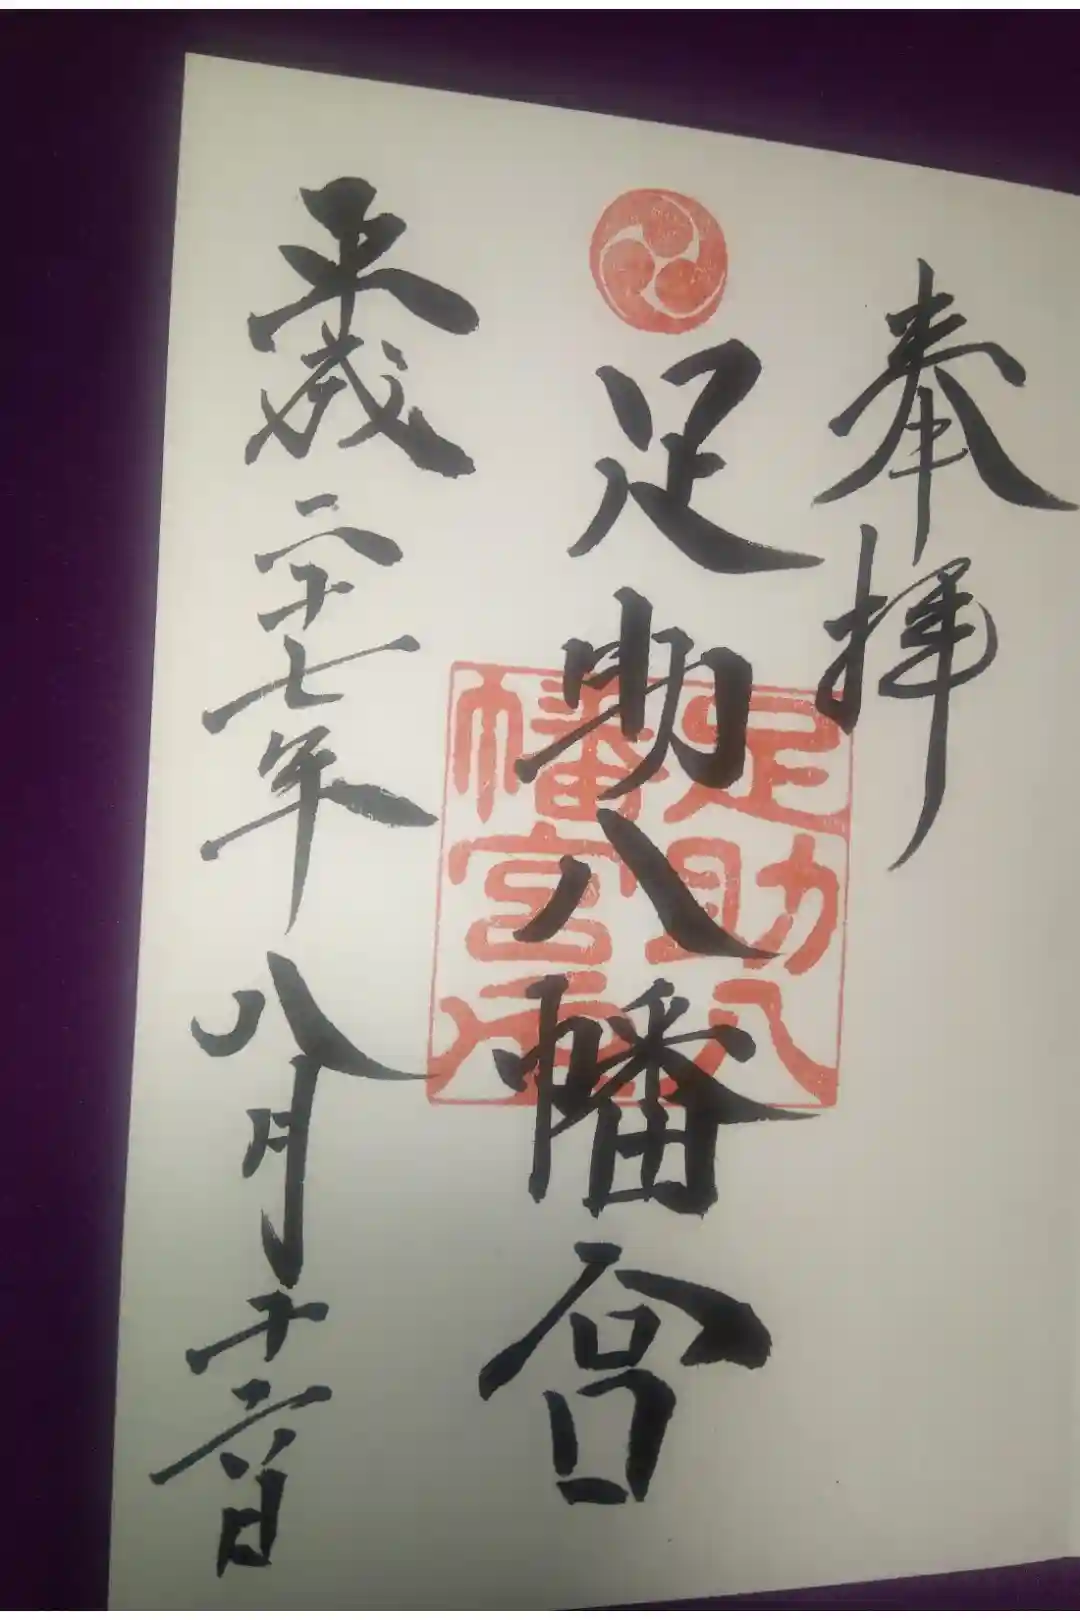 奉拝
足助八幡宮
足助八幡宮
平成二十七年八月十六日